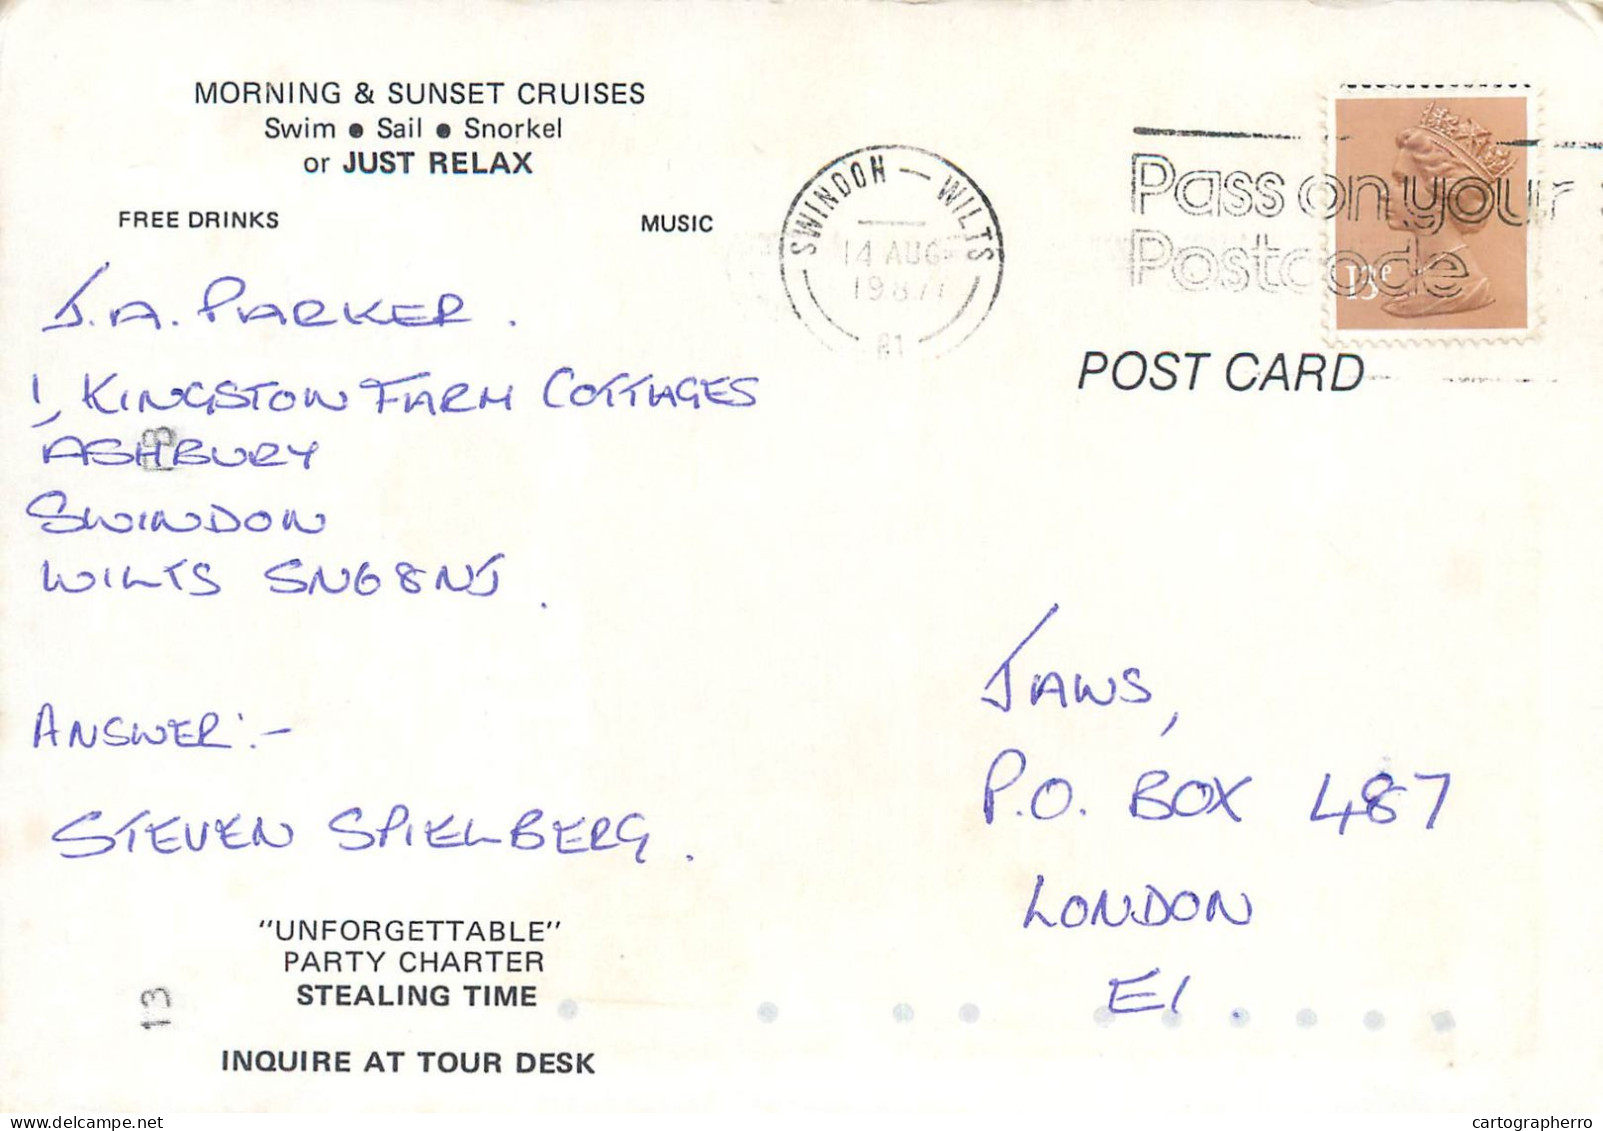 MORNING & SUNSET CRUISES
Swim ● Sail ● Snorkel
or JUST RELAX
FREE DRINKS
MUSIC
SWINDON — WILTS
14 AUG
1987
Pass on your
Postcode
13P
POST CARD
J.A. PARKER.
1, KINGSTON FARM COTTAGES
ASHBURY
SWINDON
WILTS SN68NJ.
ANSWER:-
STEVEN SPIELBERG.
JAWS,
P.O. BOX 487
LONDON
E1.
"UNFORGETTABLE"
PARTY CHARTER
STEALING TIME
13
INQUIRE AT TOUR DESK
cartographerro